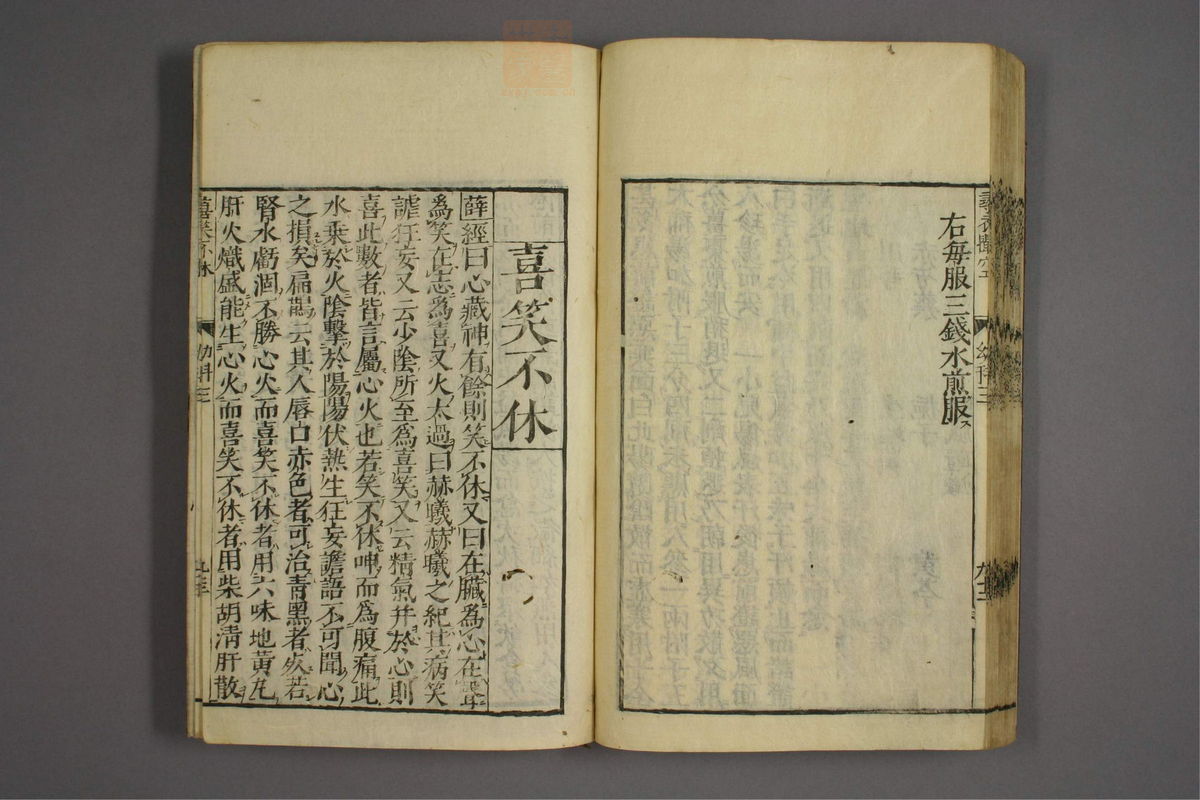 右毎服三錢水煎服ス
幼科三
喜笑不休
薛經曰心藏神有餘則笑不休又曰在臟為心在聲
為笑在志為喜又火太過曰赫曦赫曦之紀其病笑
謔狂妄又云少陰所至為喜笑又云精氣并於心則
喜此數者皆言屬心火也若笑不休呻而為腹痛此
水乗於火陰擊於陽陽伏熱生狂妄譫語不可聞心
之損矣扁鵲云其人唇口赤色者可治青黑者死若
腎水虧涸不勝心火而喜笑不休者用六味地黃丸
肝火熾盛能生心火而喜笑不休者用柴胡清肝散
喜笑不休
幼科三